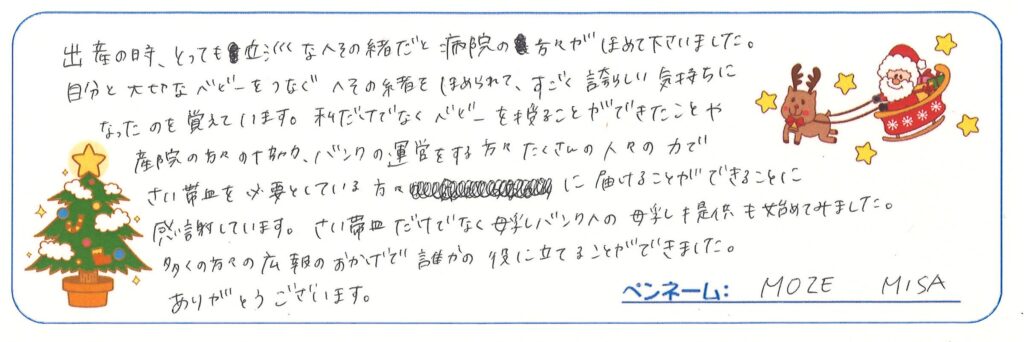 出産の時、とっても立派なへその緒だと病院の方々がほめて下さいました。
自分と大切なベビーをつなぐへその緒をほめられて、すごく誇らしい気持ちに
なったのを覚えています。私だけでなくベビーを授ることができたことや
産院の方々の協力、バンクの運営をする方々たくさんの人々の力で
さい帯血を必要としている方々に届けることができることに
感謝しています。さい帯血だけでなく母乳バンクへの母乳も提供も始めてみました。
多くの方々の広報のおかげで誰かの役に立てることができました。
ありがとうございます。
ペンネーム: MOZE MISA